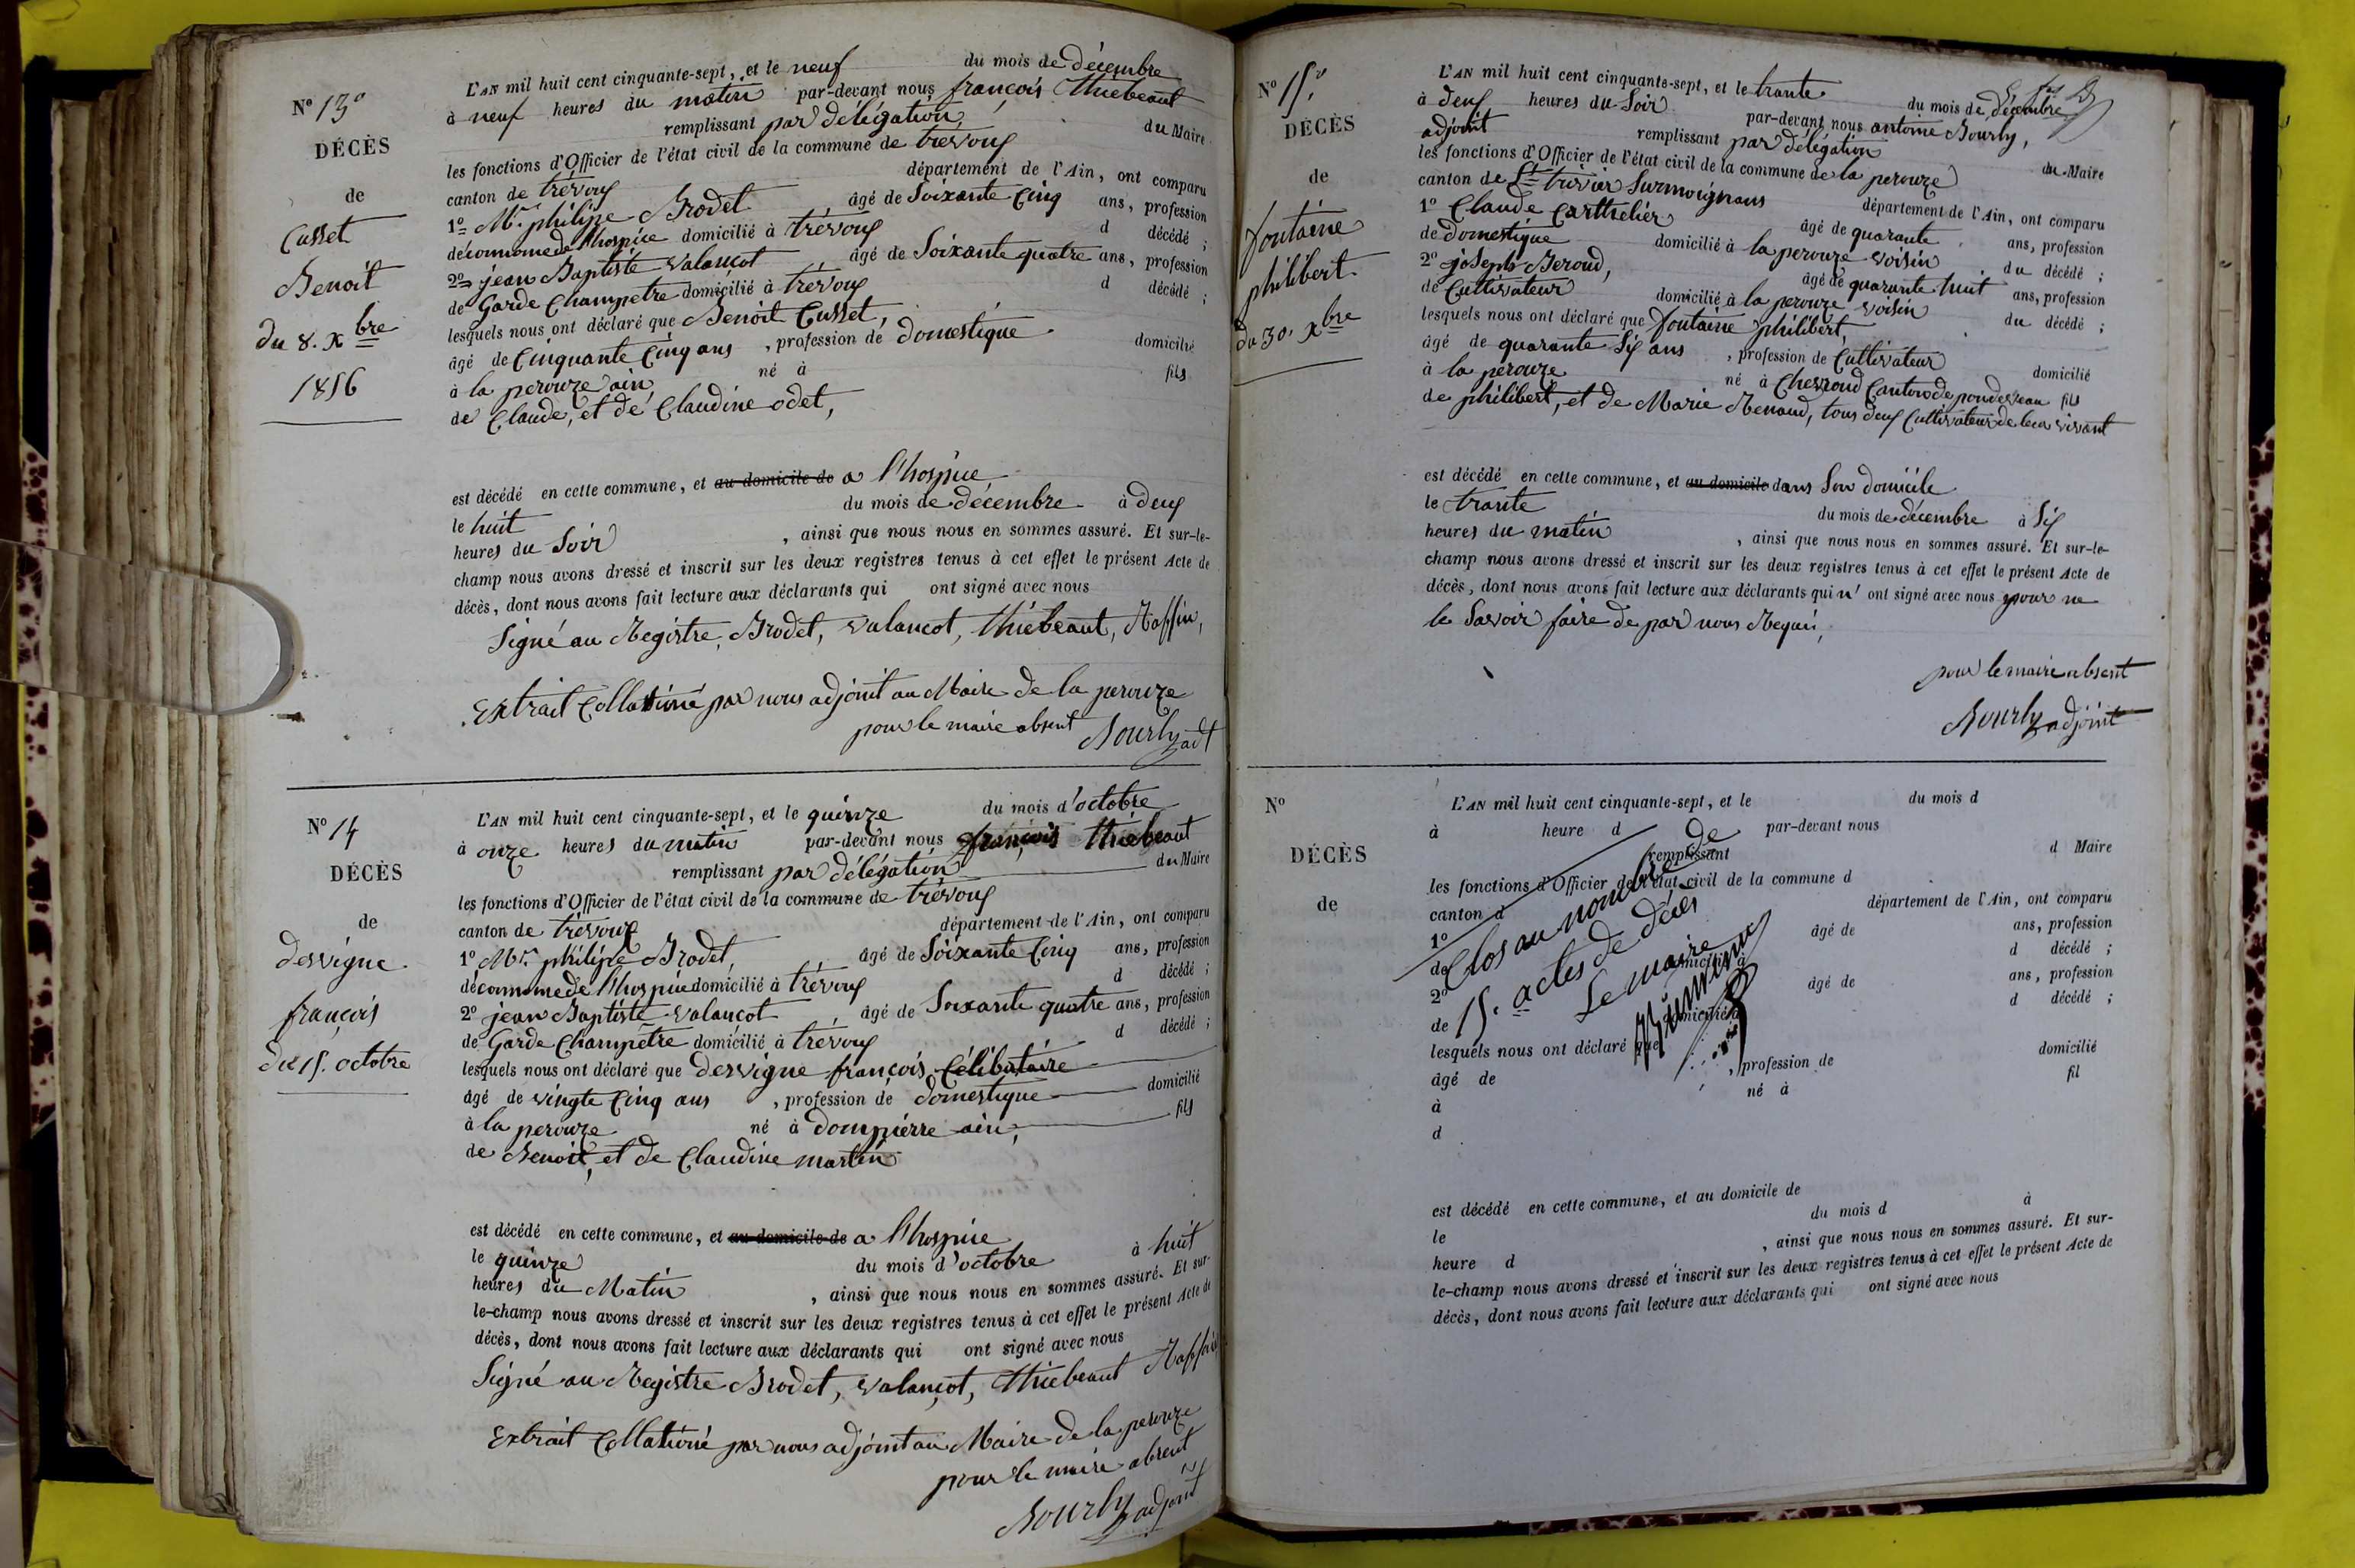 N° 13°
DÉCÈS
de
Cusset
Benoit
du 8. Xbre
1856
L'AN mil huit cent cinquante-sept, et le neuf du mois de décembre
à neuf heures du matin par-devant nous françois thiebeaut
remplissant par délégation du Maire
les fonctions d'Officier de l'état civil de la commune de trévoux
canton de trévoux département de l'Ain, ont comparu
1° Mr. philipe Brodet, âgé de soixante cinq ans, profession
déconnome de l'hospice domicilié à trévoux d décédé ;
2° jean Baptiste valançot, âgé de soixante quatre ans, profession
de Garde Champetre domicilié à trévoux d décédé ;
lesquels nous ont déclaré que Benoit Cusset,
âgé de Cinquante Cinq ans, profession de domestique domicilié
à la perouze ain né à fils
de Claude, et de Claudine odet,
est décédé en cette commune, et au domicile de a l'hospice
le huit du mois de décembre à deux
heures du Soir, ainsi que nous nous en sommes assuré. Et sur-le-
champ nous avons dressé et inscrit sur les deux registres tenus à cet effet le présent Acte de
décès, dont nous avons fait lecture aux déclarants qui ont signé avec nous
Signé au Registre, Brodet, valancot, thiebeaut, Raffin,
Extrait Collationé par nous adjoint au Maire de la perouze
pour le maire absent
Bourly adt
N° 14
DÉCÈS
de
desvigne
françois
du 15. octobre
L'AN mil huit cent cinquante-sept, et le quinze du mois d'octobre
à onze heures du matin par-devant nous françois thiebeaut
remplissant par délégation du Maire
les fonctions d'Officier de l'état civil de la commune de trévoux
canton de trévoux département de l'Ain, ont comparu
1° Mr. philipe Brodet, âgé de Soixante Cinq ans, profession
déconnome de l'hospice domicilié à trévoux d décédé ;
2° jean Baptiste valançot, âgé de Soixante quatre ans, profession
de Garde Champêtre domicilié à trévoux d décédé ;
lesquels nous ont déclaré que desvigne françois, Célibataire
âgé de vingte Cinq ans, profession de domestique domicilié
à la perouze né à dompierre ain, fils
de Benoit, et de Claudine martin
est décédé en cette commune, et au domicile de a l'hospice
le quinze du mois d'octobre à huit
heures du Matin, ainsi que nous nous en sommes assuré. Et sur-
le-champ nous avons dressé et inscrit sur les deux registres tenus à cet effet le présent Acte de
décès, dont nous avons fait lecture aux déclarants qui ont signé avec nous
Signé au Registre Brodet, valançot, thiebeaut Raffin
Extrait Collationé par nous adjoint au Maire de la perouze
pour le maire absent
Bourly adjoint
N° 15.
DÉCÈS
de
fontaine
philibert
du 30. Xbre
L'AN mil huit cent cinquante-sept, et le trante du mois de décembre
à deux heures du Soir par-devant nous antoine Bourly,
adjoint remplissant par délégation du Maire
les fonctions d'Officier de l'état civil de la commune de la perouze
canton de St trivier Surmoignans département de l'Ain, ont comparu
1° Claude Carthelier âgé de quarante ans, profession
de domestique domicilié à la perouze voisin du décédé ;
2° joseph Beroud, âgé de quarante huit ans, profession
de Cultivateur domicilié à la perouze voisin du décédé ;
lesquels nous ont déclaré que fontaine philibert,
âgé de quarante Six ans, profession de Cultivateur domicilié
à la perouze né à Chevroud Canton de pondeveau fils
de philibert, et de Marie Renaud, tous deux Cultivateur de leur vivant
est décédé en cette commune, et au domicile dans Son domicile
le trante du mois de décembre à Six
heures du matin, ainsi que nous nous en sommes assuré. Et sur-le-
champ nous avons dressé et inscrit sur les deux registres tenus à cet effet le présent Acte de
décès, dont nous avons fait lecture aux déclarants qui n'ont signé avec nous pour ne
le Savoir faire de par nous Requis,
pour le maire absent
Bourly adjoint
N°
DÉCÈS
de
L'AN mil huit cent cinquante-sept, et le du mois d
à heure d par-devant nous
remplissant d Maire
les fonctions d'Officier de l'état civil de la commune d
canton d département de l'Ain, ont comparu
1° âgé de ans, profession
de domicilié à d décédé ;
2° âgé de ans, profession
de domicilié à d décédé ;
lesquels nous ont déclaré que
âgé de , profession de domicilié
à né à fil
d
Clos au nombre de
15. actes de décès
Le maire
est décédé en cette commune, et au domicile de
le du mois d à
heure d , ainsi que nous nous en sommes assuré. Et sur-
le-champ nous avons dressé et inscrit sur les deux registres tenus à cet effet le présent Acte de
décès, dont nous avons fait lecture aux déclarants qui ont signé avec nous